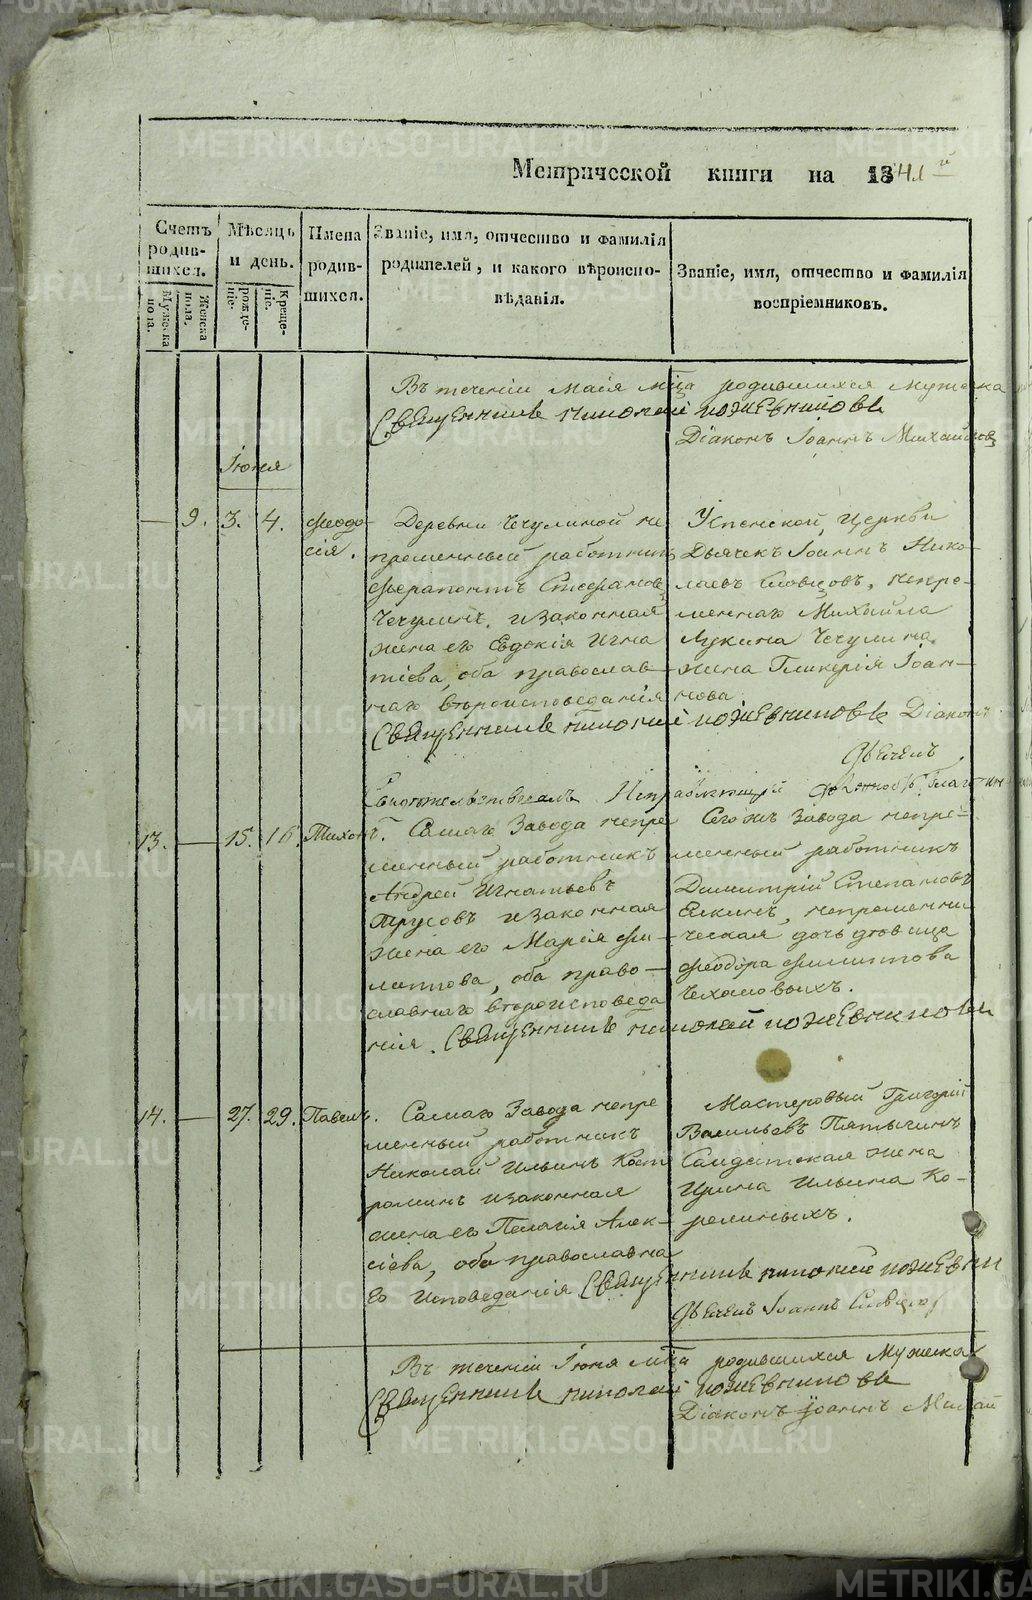 Метрической книги на 1841й
Счетъ родив-шихся.
Мѣсяцъ и день.
Имена родив-шихся.
Званіе, имя, отчество и фамилія
родителей, и какого вѣроиспо-
вѣданія.
Званіе, имя, отчество и фамилія
воспріемниковъ.
Мужеска пола.
Женска пола.
рожде-ніе.
креще-ніе.
Въ теченіи Маія мца родившихся Мужеска
Священникъ Николай Кожевниковъ
Діаконъ Іоаннъ Михайловъ
Іюня
— 9. 3. 4. Феодо-
сія.
Деревни Чечулиной не
пременный работникъ
Ферапонтъ Стефановъ
Чечулинъ, и законная
жена его Евдокія Игна
тіева, оба православ-
наго вѣроисповеданія
Успенской Церкви
Дьячекъ Іоаннъ Нико-
лаевъ Словцовъ, непре-
меннаго Михайла
Лукина Чечулина
жена Гликерія Іоан-
нова
Священникъ Николай Кожевниковъ Діаконъ
Дьячекъ
13. — 15. 16. Тихонъ.
Самаго Завода непре
менный работникъ
Андрей Игнатьевъ
Трусовъ и законная
жена его Марія Фи-
липпова, оба право-
славнаго вѣроисповеда
нія. Священникъ Николай Кожевниковъ
Сегожъ Завода непре-
менный работникъ
Димитрій Степановъ
Елкинъ, непременни-
ческая дочь дѣвица
Феодора Филиппова
Чехомовыхъ.
14. — 27. 29. Павелъ.
Самаго Завода непре
менный работникъ
Николай Ильинъ Кост
роминъ и законная
жена его Пелагія Алек-
сіева, оба православна
го исповеданія Священникъ Николай Кожевни
Мастеровый Григорій
Васильевъ Пятыгинъ
Солдатская жена
Ирина Ильина Ко-
релиныхъ.
Дьячекъ Іоаннъ Словцовъ
Въ теченіи Іюня мца родившихся Мужеска
Священникъ Николай Кожевниковъ
Діаконъ Іоаннъ Михай
METRIKI.GASO-URAL.RU